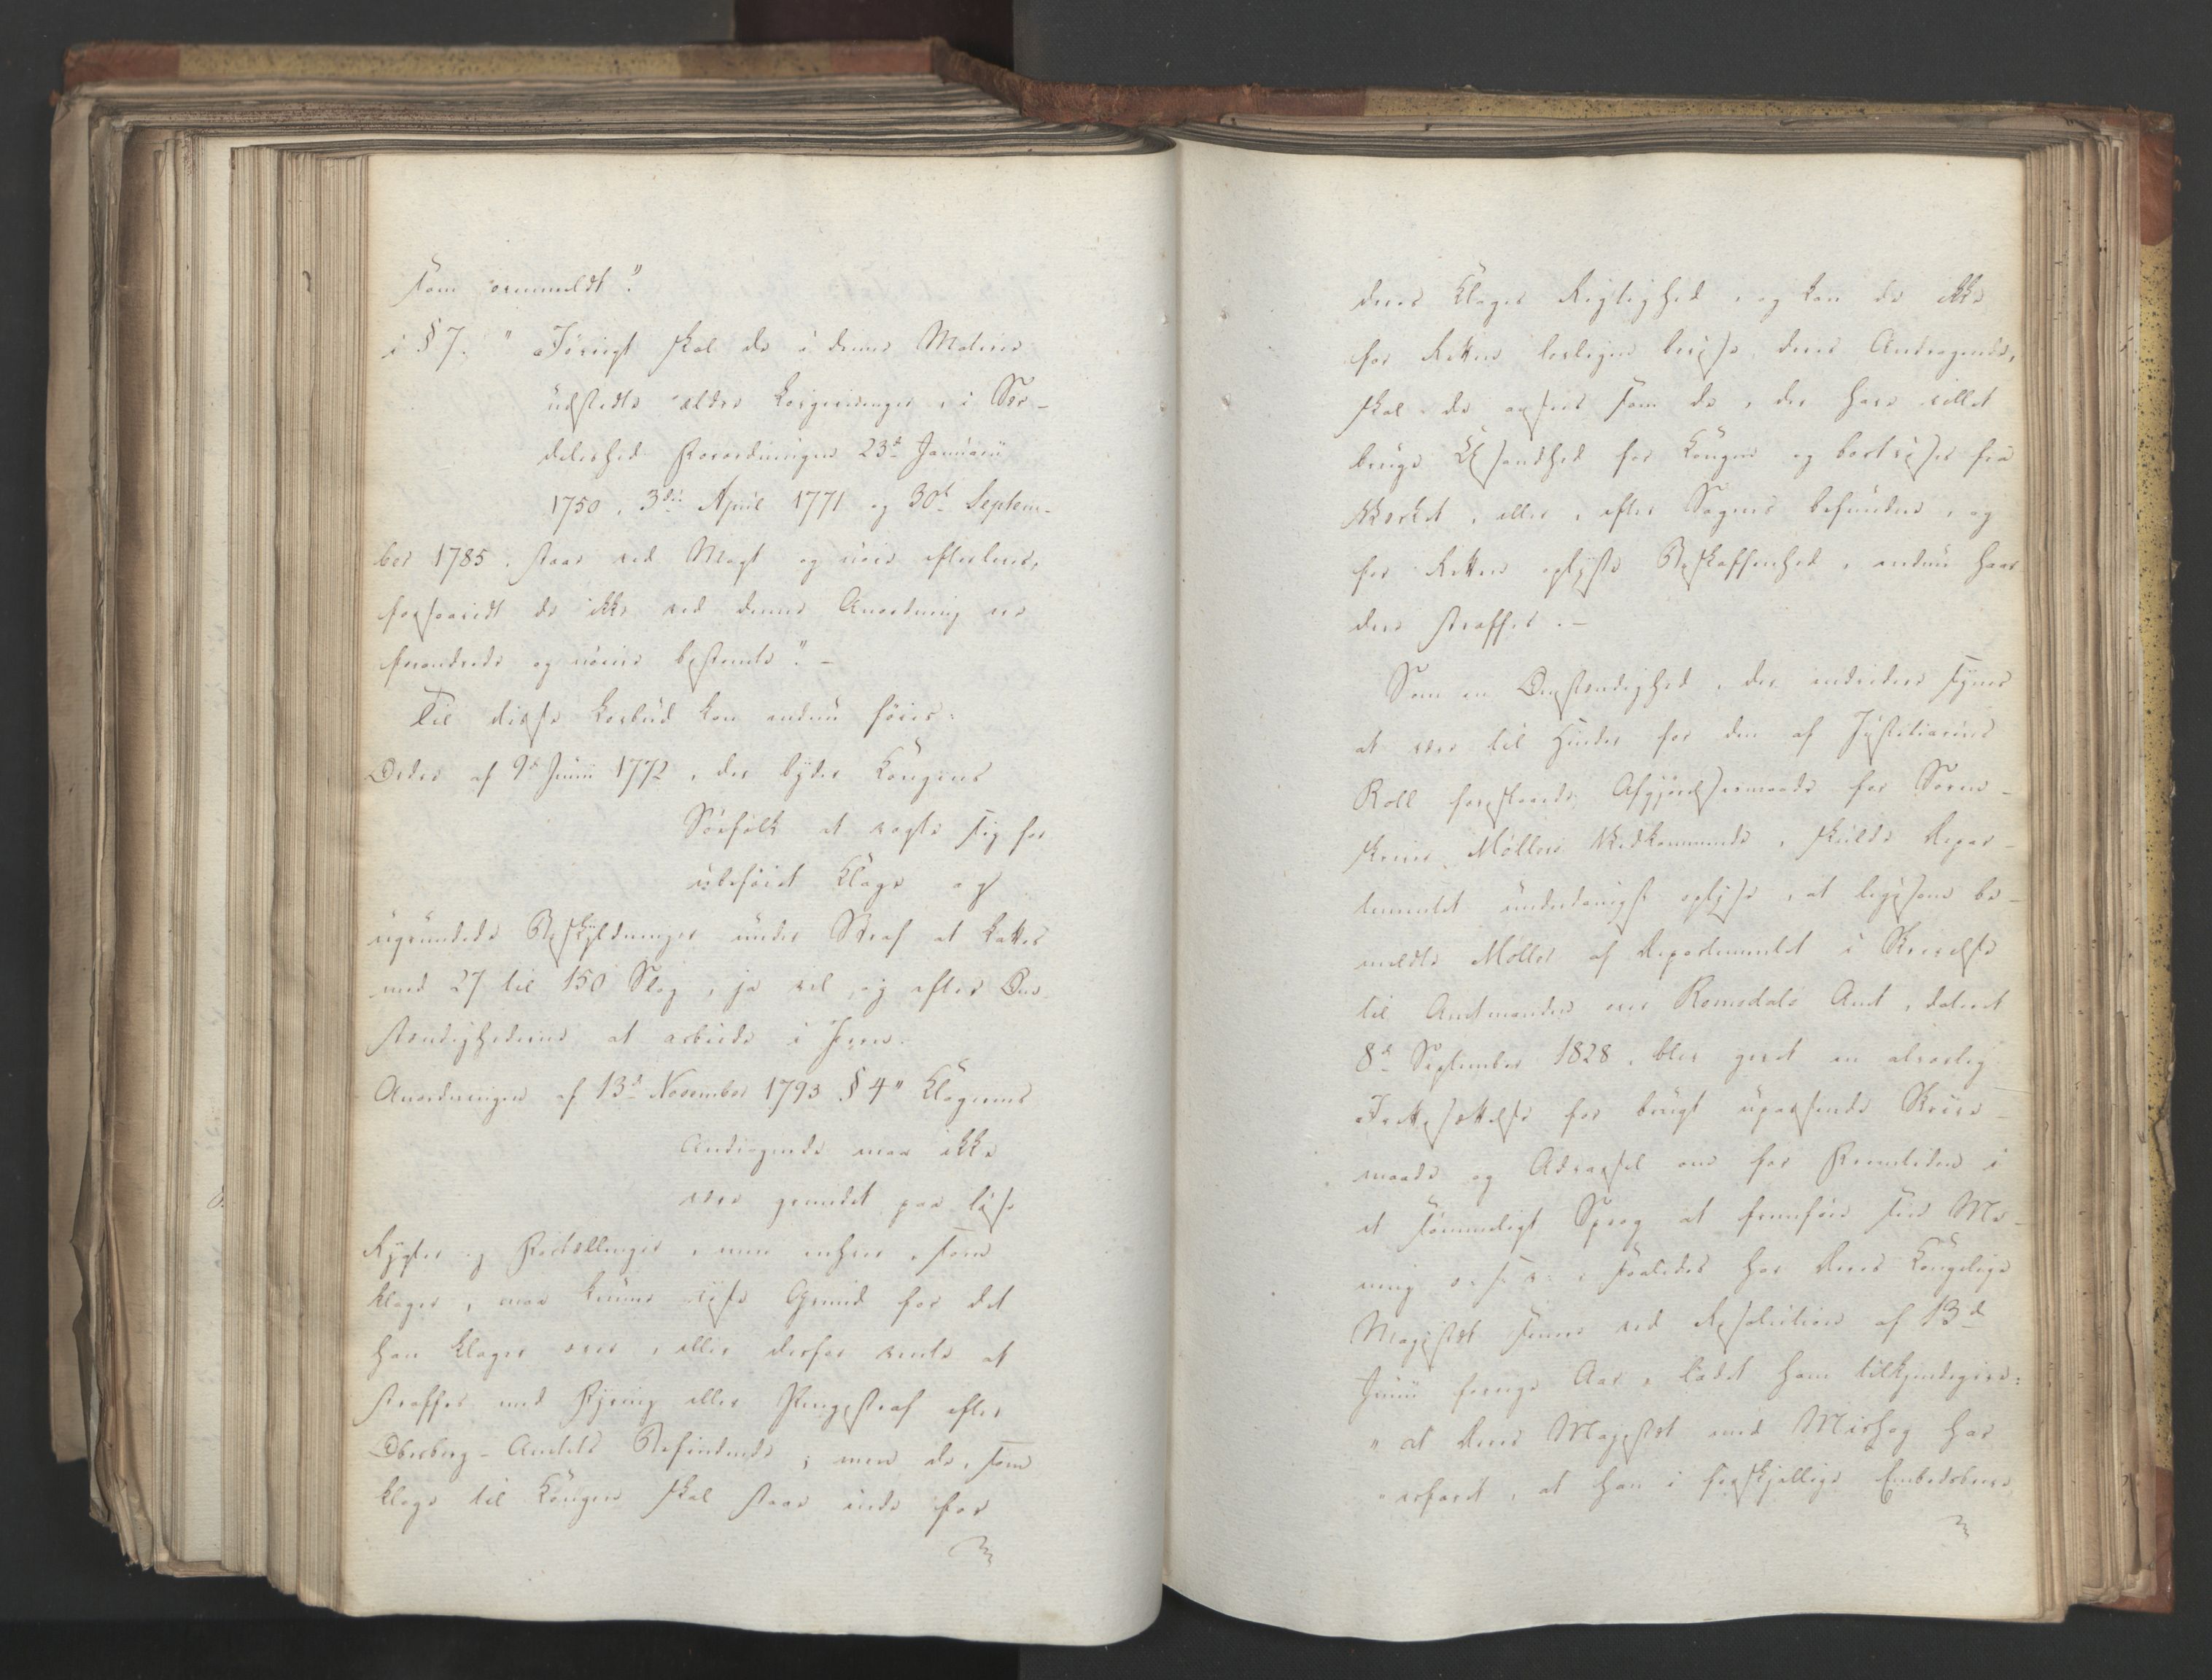 som ovenmeldt."
i § 7. " Iøvrigt skal de i denne Materie
udstedte ældre Lovgivninger, i Sær-
deleshed Forordningen 23de Januarii
1750, 3die April 1771 og 30te Septem-
ber 1785, staae ved Magt og nøie efterleves,
forsaavidt de ikke ved denne Anordning ere
forandrede og nøiere bestemte." –
Til disse Lovbud kan endnu føies:
Ordre af 9de Junii 1772, der byder Kongens
Søefolk at vogte sig for
ubeføiet Klage og
ugrundede Beskyldninger under Straf at kattes
med 27 til 150 Slag, ja vel og efter Om-
stændighederne at arbeide i Jern.
Anordningen af 13de November 1793 § 4 " Klagerens
Andragende maa ikke
være grundet paa løse
Rygter og Fortællinger, men enhver, som
klager, maa kunne vise Grund for det
han klager over, eller derfor vente at
straffes med Fjering eller Pengestraf efter
Oberberg-Amtets Befindende; men de, som
klage til Kongen skal staae inde for
deres Klages Rigtighed, og kan de ikke
for Retten lovligen bevise deres Andragende,
skal de ansees som de, der have villet
bruge Usandhed for Kongen og bortvises fra
Værket, eller, efter Sagens befundne, og
for Retten oplyste Beskaffenhed, endnu haar
dere straffes. –
Som en Omstændighed, der endvidere synes
at være til Hinder for den af Justitiarius
Roll foreslaaede Afgjørelsesmaade for Soren-
skriver Møllers Vedkommende, skulde Depar-
tementet underdanigst oplyse, at ligesom be-
meldte Møller af Departementet i Skrivelse
til Amtmanden over Romsdals Amt, dateret
8de September 1828, blev givet en alvorlig
Irettesættelse for brugt upassende Skrive-
maade og Advarsel om for Fremtiden i
et sømmeligt Sprog at fremføre sin Me-
ning o. s. v., saaledes har Deres Kongelige
Majestæt senere ved Resolution af 13de
Junii forrige Aar, ladet ham tilkjendegive:
" at Deres Majestæt med Mishag har
" erfaret, at han i forskjellige Embedsbreve